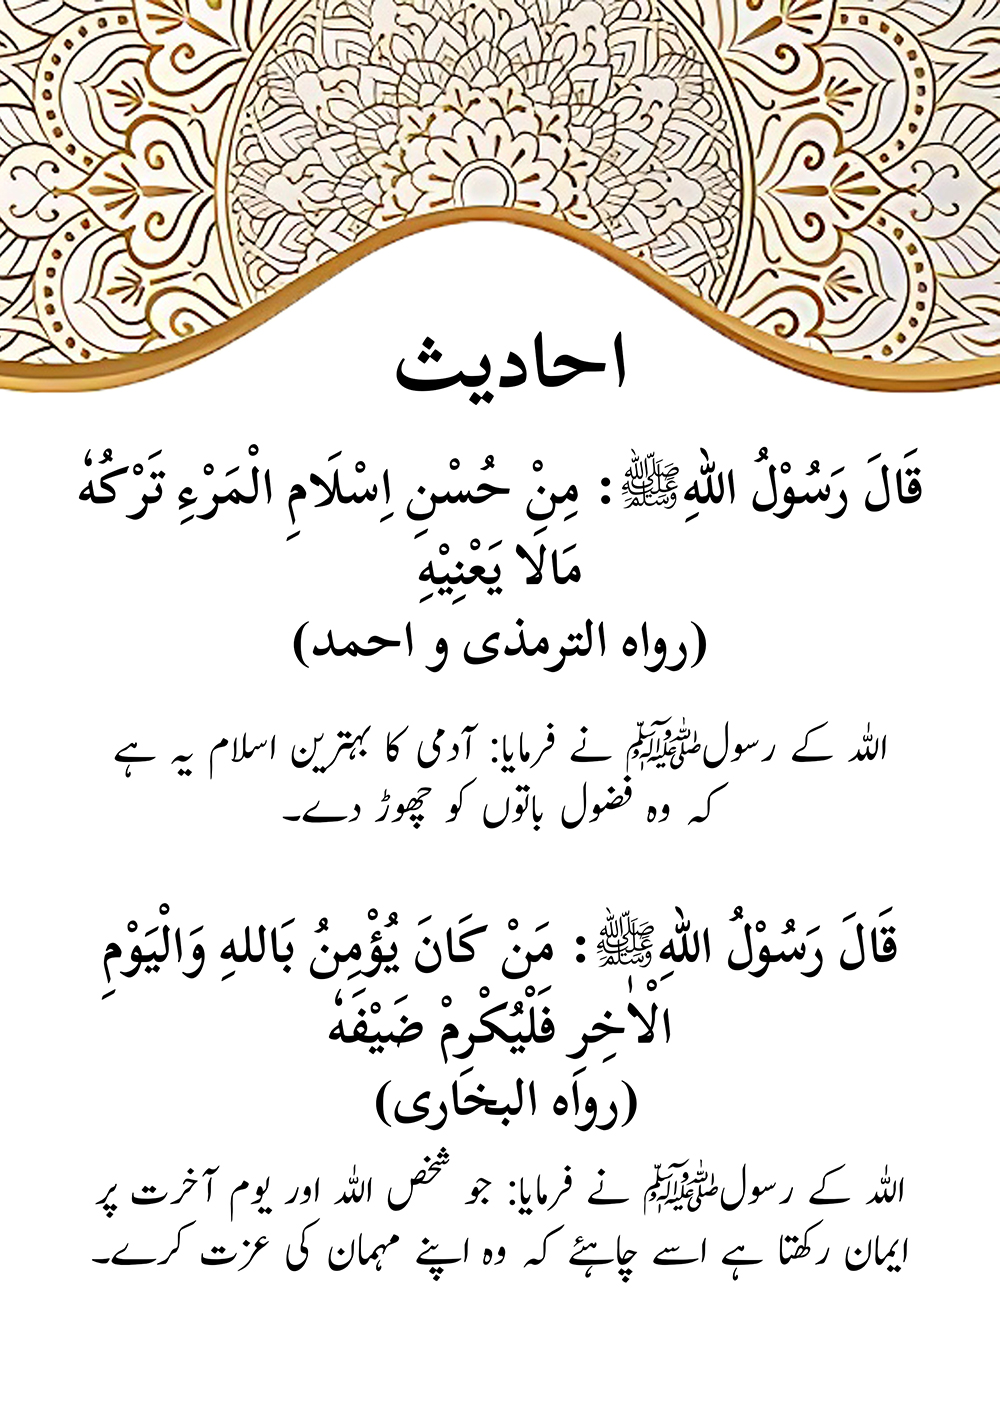 احادیث
قَالَ رَسُوْلُ اللهِ ﷺ : مِنْ حُسْنِ اِسْلَامِ الْمَرْءِ تَرْكُهٗ
مَالَا يَعْنِيْهِ
(رواه الترمذی و احمد)
اللہ کے رسول ﷺ نے فرمایا: آدمی کا بہترین اسلام یہ ہے
کہ وہ فضول باتوں کو چھوڑ دے۔
قَالَ رَسُوْلُ اللهِ ﷺ : مَنْ كَانَ يُؤْمِنُ بَاللهِ وَالْيَوْمِ
الْاٰخِرِ فَلْيُكْرِمْ ضَيْفَهٗ
(رواه البخاری)
اللہ کے رسول ﷺ نے فرمایا: جو شخص اللہ اور یوم آخرت پر
ایمان رکھتا ہے اسے چاہئے کہ وہ اپنے مہمان کی عزت کرے۔